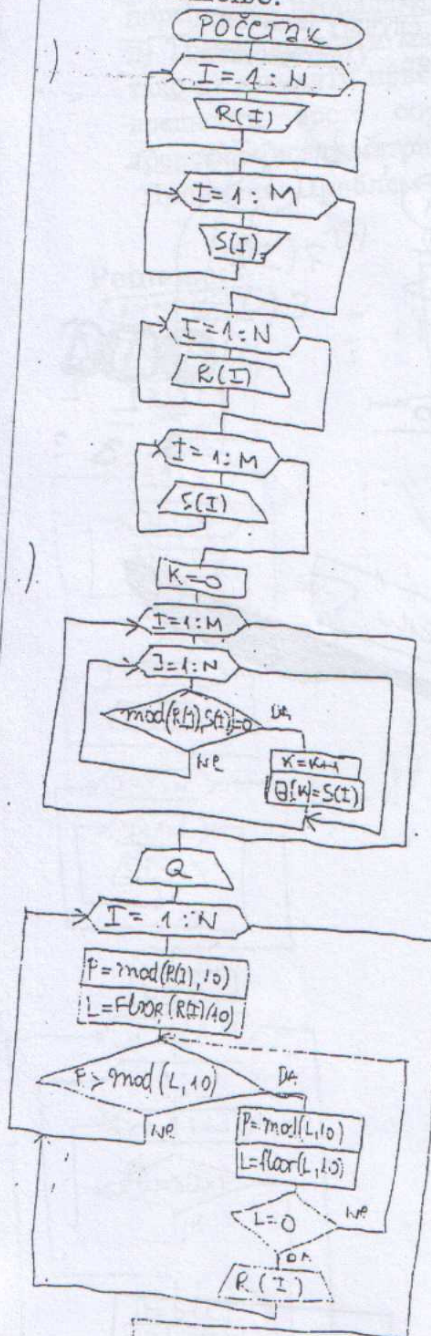 POČETAK
I = 1 : N
R(I)
I = 1 : N
S(I)
I = 1 : N
R(I)
I = 1 : M
S(I)
K=0
I=1:M
J=1:N
DA
NE
K=K+1
Q(K)=S(I)
Q
I = 1 : N
P=mod(R(I),10)
L=FLOOR(R(I)/10)
P > mod(L,10)
DA
NE
P=mod(L,10)
L=floor(L,10)
L=0
NE
DA
R(I)